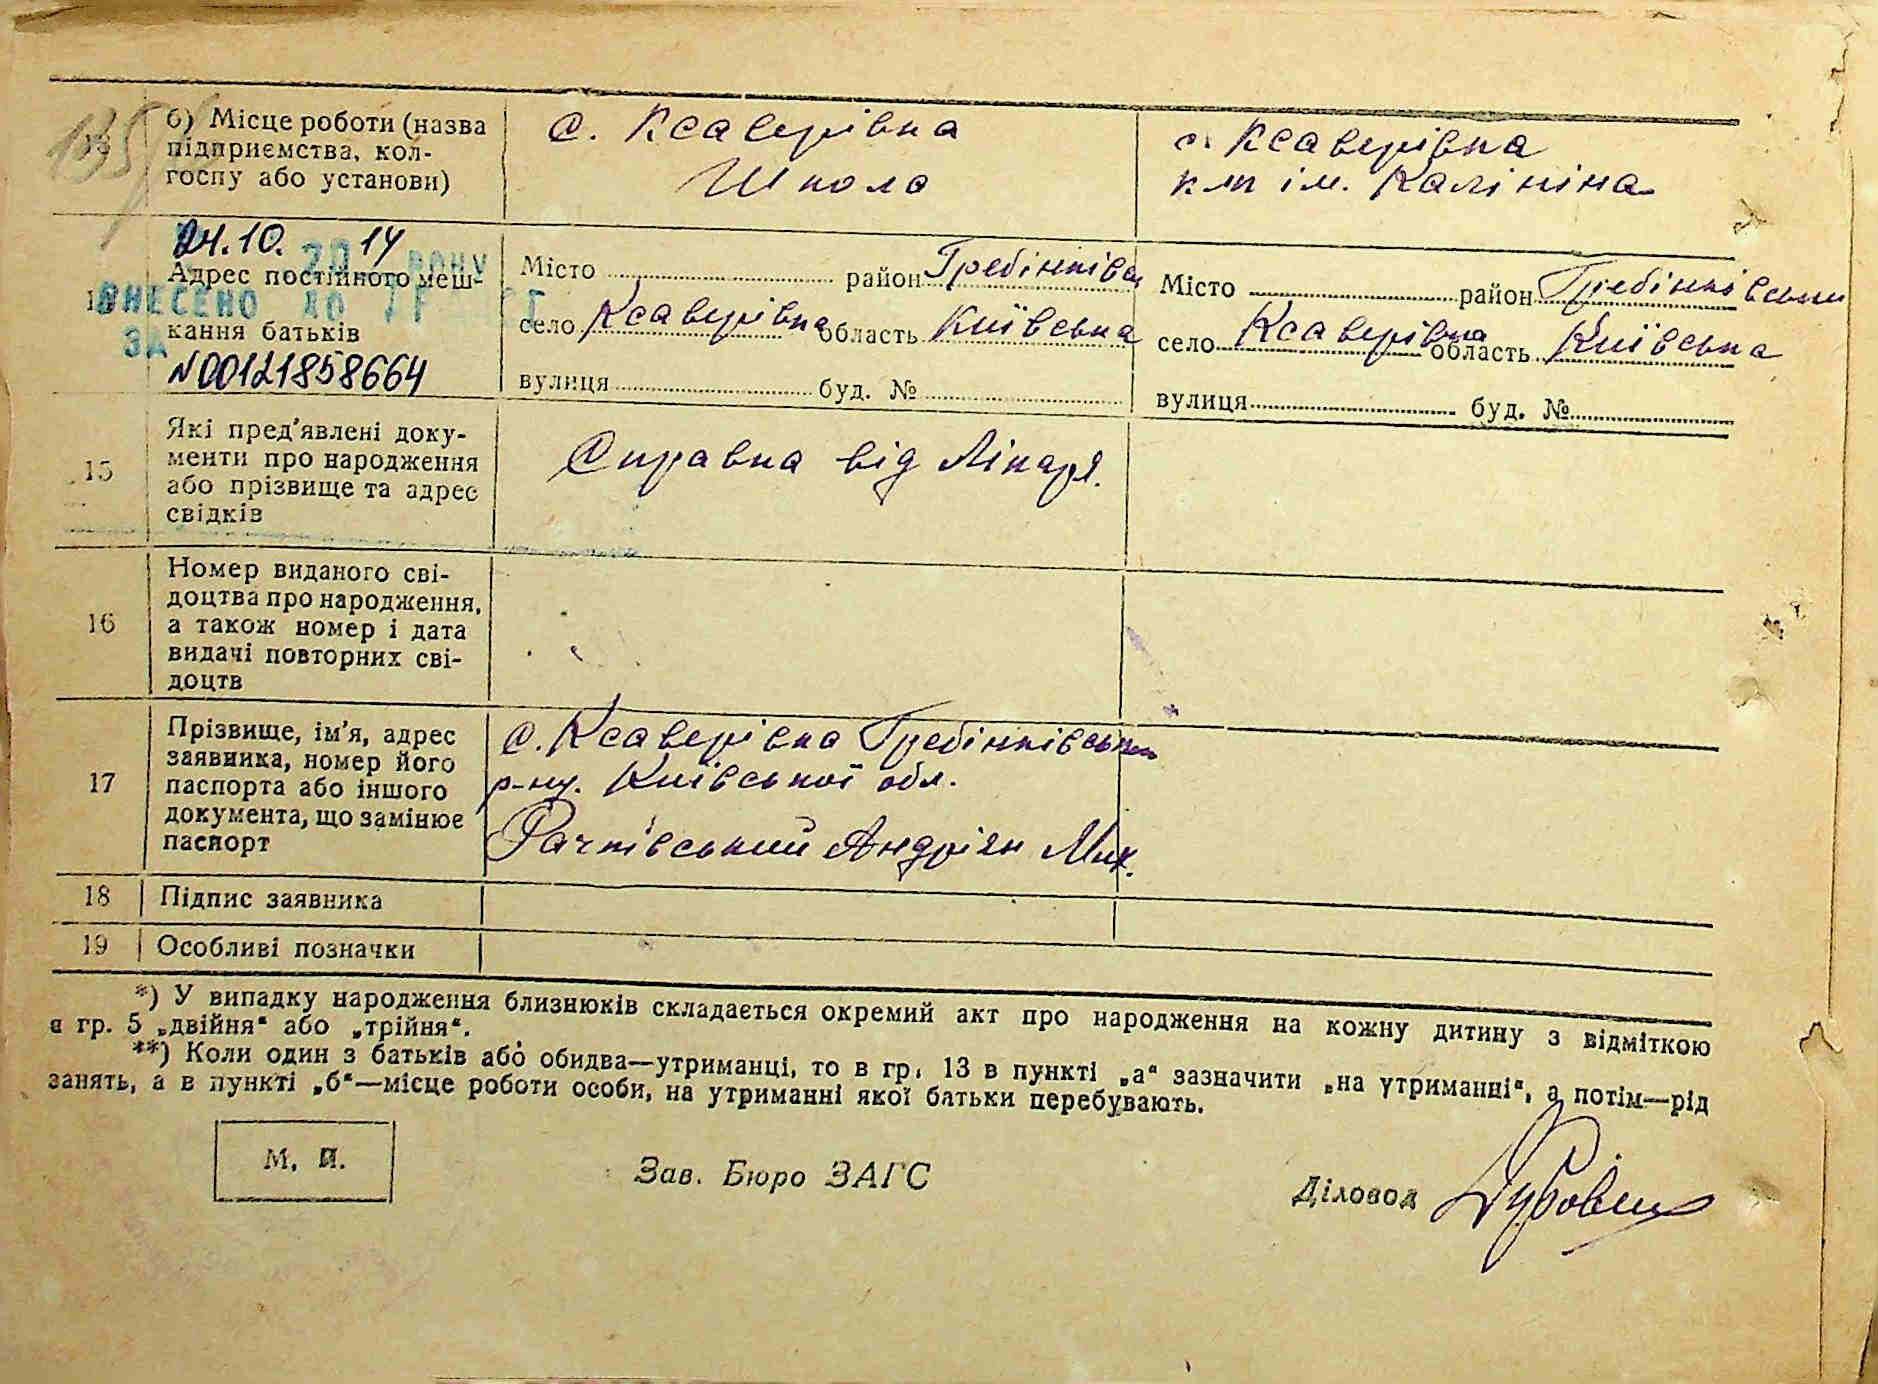 б) Місце роботи (назва
підприємства, кол-
госпу або установи)
с. Ксаверівка
Школа
с. Ксаверівка
клп ім. Калініна
24.10. 2014 року
Адрес постійного меш-
ВНЕСЕНО ДО
кання батьків
ЗА
N00121858664
Місто район Гребінківськ
село Ксаверівка область Київська
вулиця буд. №
Місто район Гребінківський
село Ксаверівка область Київська
вулиця буд. №
15
Які пред'явлені доку-
менти про народження
або прізвище та адрес
свідків
Справка від Лікаря.
16
Номер виданого сві-
доцтва про народження,
а також номер і дата
видачі повторних сві-
доцтв
17
Прізвище, ім'я, адрес
заявника, номер його
паспорта або іншого
документа, що замінює
паспорт
с. Ксаверівка Гребінківськ
р-ну. Київської обл.
Рачківський Андріян Мих.
18 Підпис заявника
19 Особливі позначки
*) У випадку народження близнюків складається окремий акт про народження на кожну дитину з відміткою
в гр. 5 „двійня“ або „трійня“.
**) Коли один з батьків або обидва—утриманці, то в гр. 13 в пункті „а“ зазначити „на утриманні“, а потім—рід
занять, а в пункті „б“—місце роботи особи, на утриманні якої батьки перебувають.
М. П.
Зав. Бюро ЗАГС
Діловод